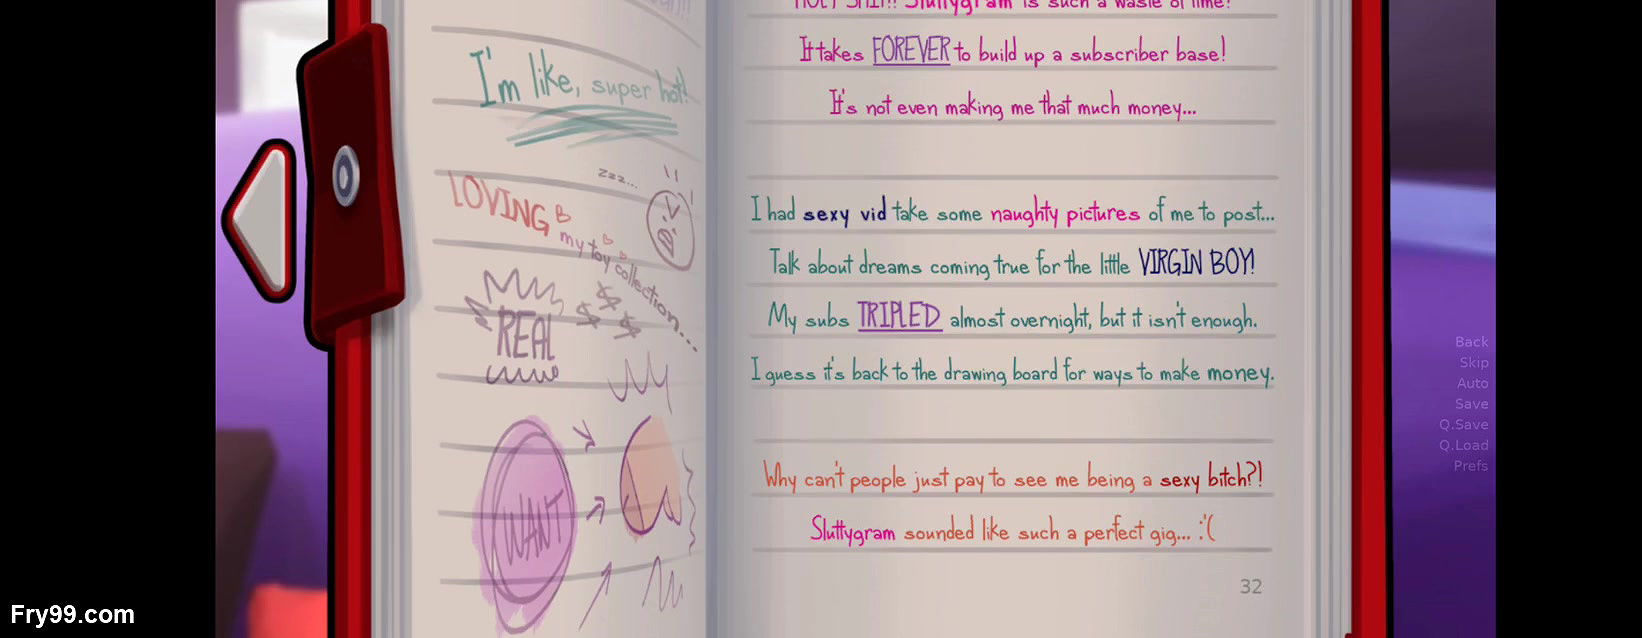 I'm like, super hot!
LOVING
my toy collection...
zzz...
$ $ $
REAL
WANT
HOLY SHIT!! Sluttygram is such a waste of time!
It takes FOREVER to build up a subscriber base!
It's not even making me that much money...
I had sexy vid take some naughty pictures of me to post...
Talk about dreams coming true for the little VIRGIN BOY!
My subs TRIPLED almost overnight, but it isn't enough.
I guess it's back to the drawing board for ways to make money.
Why can't people just pay to see me being a sexy bitch?!
Sluttygram sounded like such a perfect gig... :'(
32
Back
Skip
Auto
Save
Q.Save
Q.Load
Prefs
Fry99.com